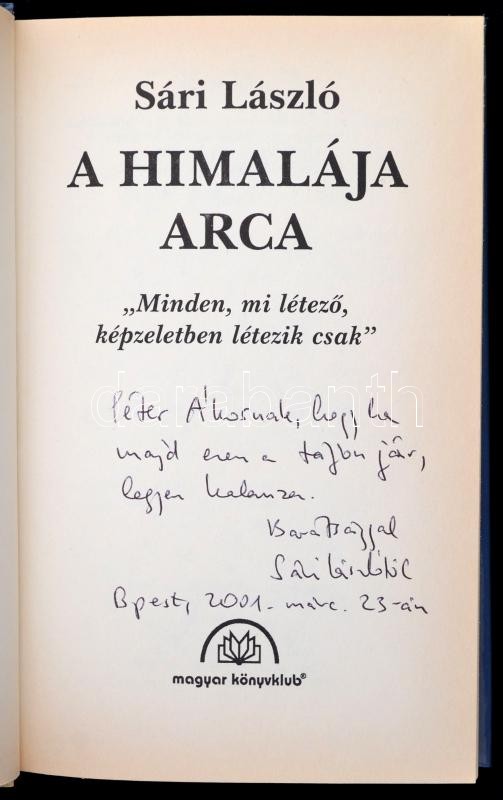 Sári László
A HIMALÁJA
ARCA
„Minden, mi létező,
képzeletben létezik csak”
darabanth
Péter Ákosnak, hogy ha
majd ezen a tájon jár,
legyen kalauza.
Barátsággal
Sári Lászlótól
Bpest, 2001. márc. 23-án
magyar könyvklub®